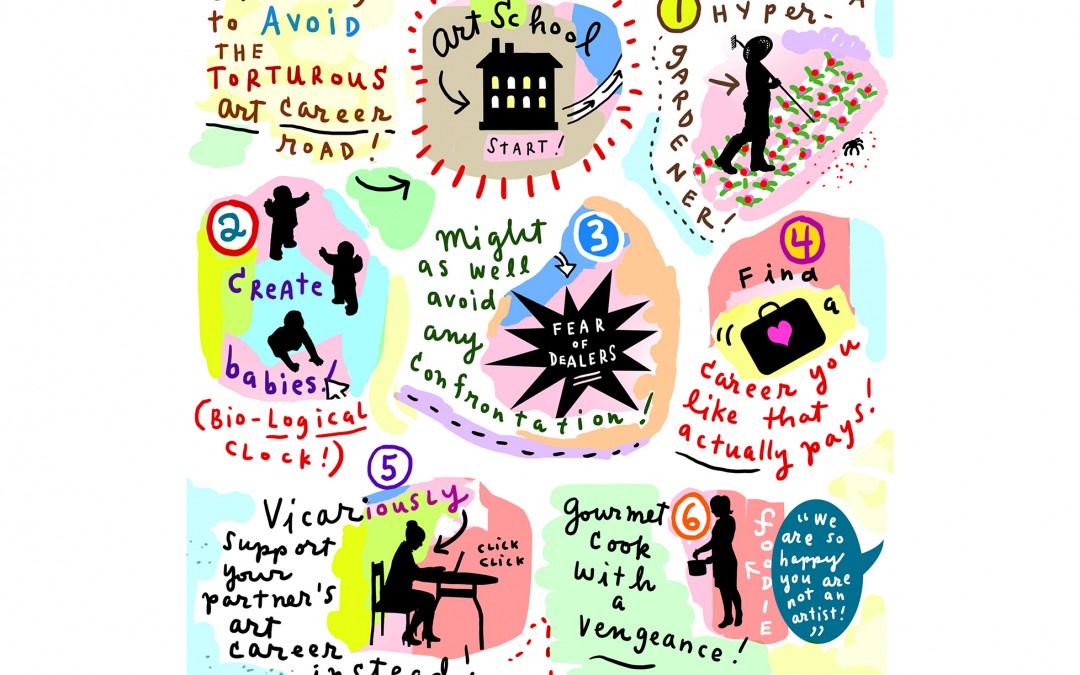 to AVOID
THE
TORTUROUS
art career
ROAD!
art School
START!
1
HYPER-
GARDENER!
2
CREATE
babies!
(Bio-Logical
CLOCK!)
3
Might
as well
avoid
any
confrontation!
FEAR
OF
DEALERS
4
Find
a
career you
like that
actually pays!
5
Vicariously
support
your
partner's
art
career
instead!
CLICK
CLICK
6
Gourmet
cook
with
a
vengeance!
foodie
"We
are so
happy
you are
not an
artist!
"